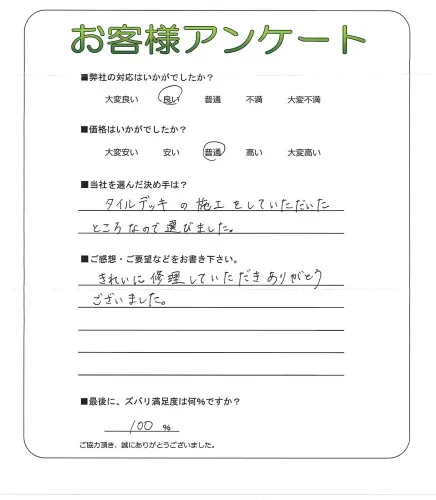 お客様アンケート
■弊社の対応はいかがでしたか？
大変良い 良い 普通 不満 大変不満
■価格はいかがでしたか？
大変安い 安い 普通 高い 大変高い
■当社を選んだ決め手は？
タイルデッキの施工をしていただいた
ところなので選びました。
■ご感想・ご要望などをお書き下さい。
きれいに修理していただきありがとう
ございました。
■最後に、ズバリ満足度は何％ですか？
100 ％
ご協力頂き、誠にありがとうございました。